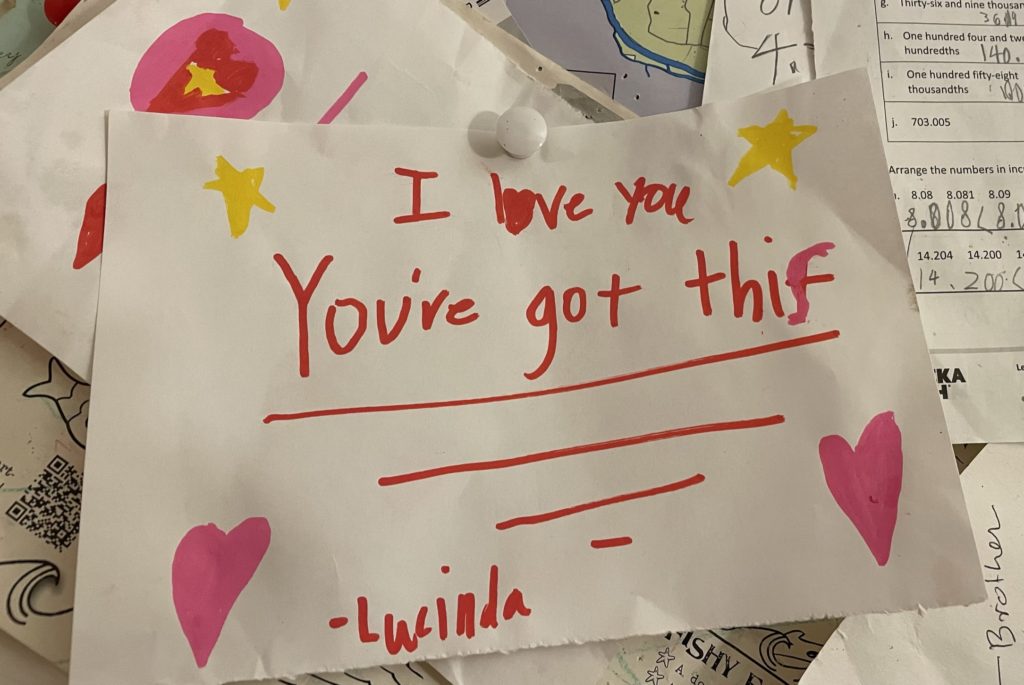 I love you
You're got this
-Lucinda
g. Thirty-six and nine thousan
h. One hundred four and two
hundredths
140.
i. One hundred fifty-eight
thousandths
j. 703.005
Arrange the numbers in inc
8.08 8.081 8.09
14.204 14.200
14.200<
KA
Brother
FISHY